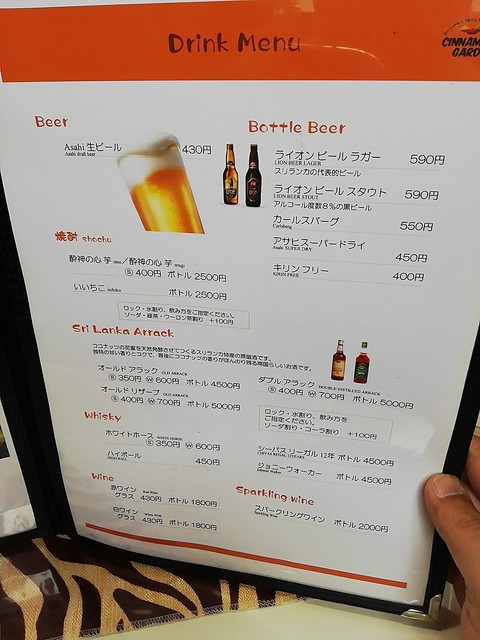 Drink Menu
CINNAM
GARD
Beer
Asahi 生ビール 430円
Asahi draft beer
Bottle Beer
ライオン ビール ラガー 590円
LION BEER LAGER
スリランカの代表的ビール
ライオン ビール スタウト 590円
LION BEER STOUT
アルコール度数8%の黒ビール
カールスバーグ 550円
Carlsberg
アサヒスーパードライ 450円
Asahi SUPER DRY
キリン フリー 400円
KIRIN FREE
焼酎 shochu
酔神の心 芋 imo／酔神の心 芋 mugi
Ⓢ 400円 ボトル 2500円
いいちこ iichiko ボトル 2500円
ロック・水割り、飲み方をご指定ください。
ソーダ・緑茶・ウーロン茶割り ＋100円
Sri Lanka Arrack
ココナッツの花蜜を天然発酵させてつくるスリランカ特産の蒸留酒です。
独特の甘い香りとコクで、最後にココナッツの香りがほんのり残る南国らしいお酒です。
オールド アラック OLD ARRACK
Ⓢ 350円 Ⓦ 600円 ボトル 4500円
オールド リザーブ OLD ARRACK
Ⓢ 400円 Ⓦ 700円 ボトル 5000円
ダブル アラック DOUBLE DISTILLED ARRACK
Ⓢ 400円 Ⓦ 700円 ボトル 5000円
ロック・水割り、飲み方を
ご指定ください。
ソーダ割り・コーラ割り ＋100円
Whisky
ホワイトホース WHITE HORSE
Ⓢ 350円 Ⓦ 600円
ハイボール 450円
HIGH BALL
シーバス リーガル 12年 ボトル 4500円
CHIVAS REGAL 12YEARS
ジョニーウォーカー ボトル 4500円
Johnnie Walker
Wine
赤ワイン Red Wine
グラス 430円 ボトル 1800円
白ワイン White Wine
グラス 430円 ボトル 1800円
Sparkling wine
スパークリングワイン ボトル 2000円
Sparkling Wine